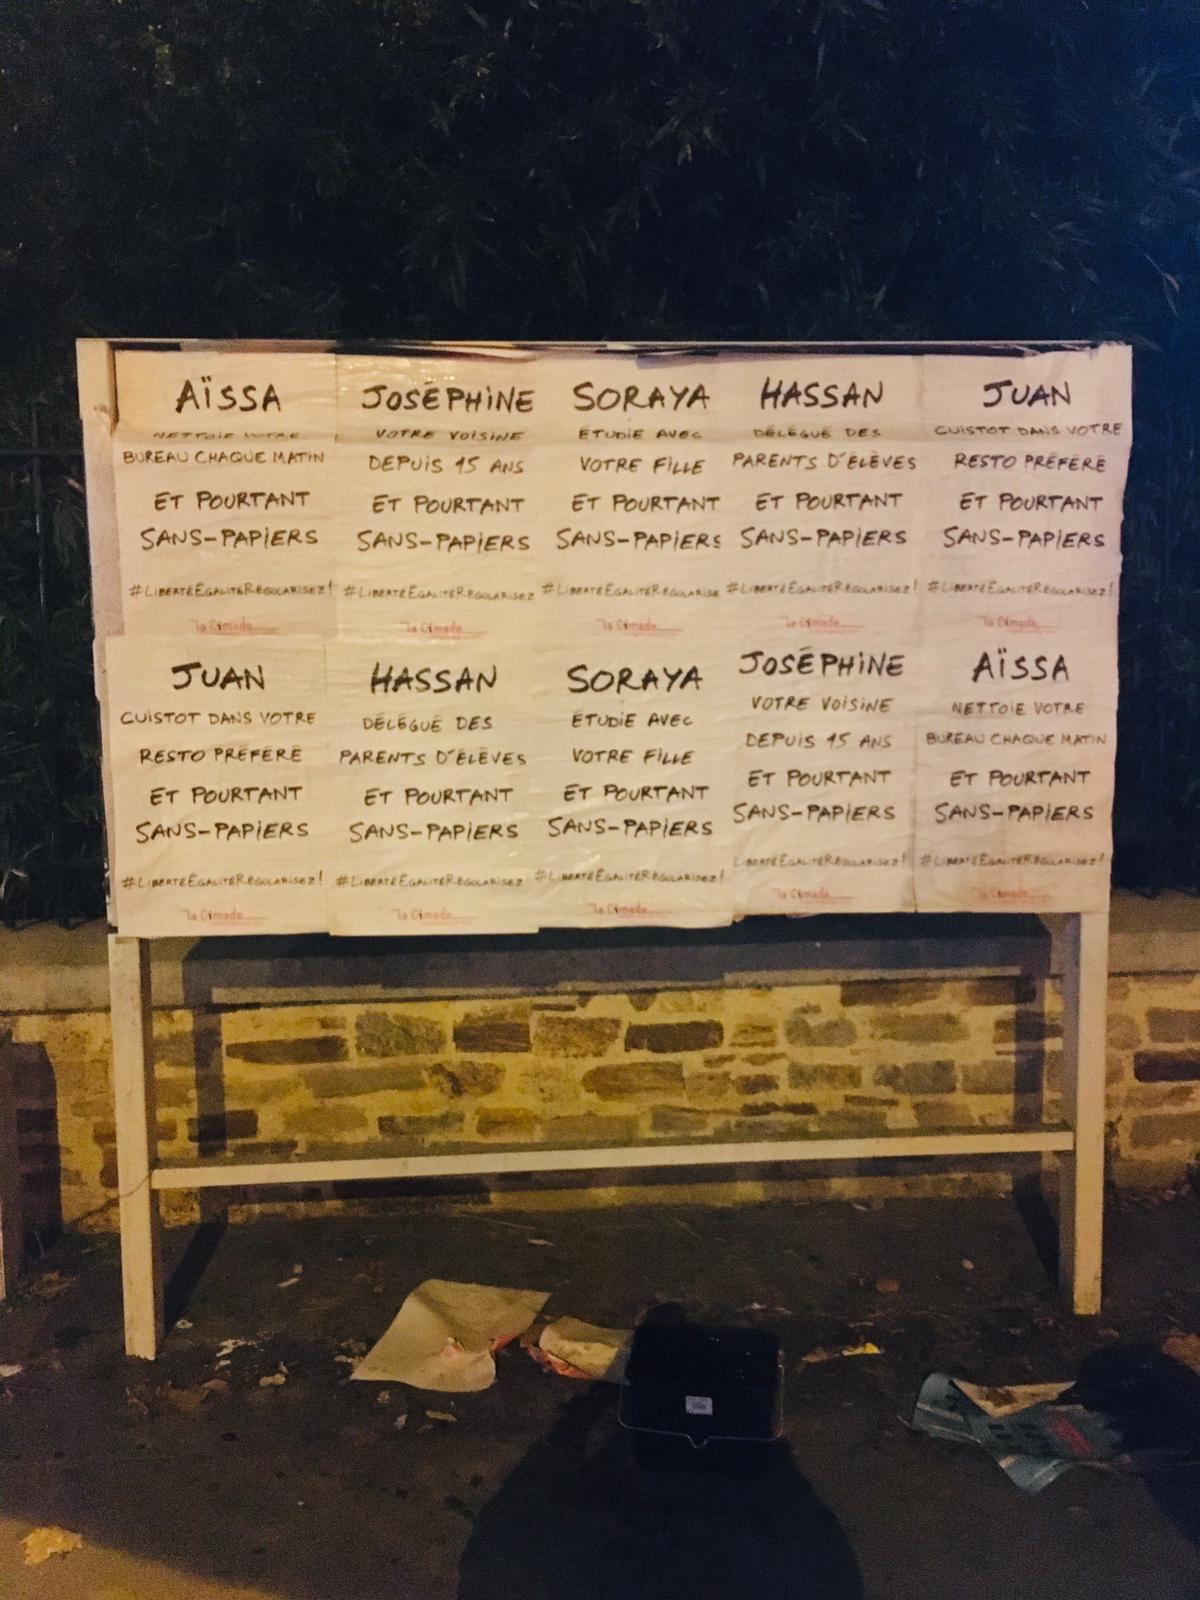 AÏSSA
NETTOIE VOTRE
BUREAU CHAQUE MATIN
ET POURTANT
SANS-PAPIERS
#LIBERTÉEGALITÉRÉGULARISEZ!
la Cimade
JOSÉPHINE
VOTRE VOISINE
DEPUIS 15 ANS
ET POURTANT
SANS-PAPIERS
#LIBERTÉEGALITÉRÉGULARISEZ
la Cimade
SORAYA
ÉTUDIE AVEC
VOTRE FILLE
ET POURTANT
SANS-PAPIERS
#LIBERTÉEGALITÉRÉGULARISE
la Cimade
HASSAN
DÉLÉGUÉ DES
PARENTS D'ÉLÈVES
ET POURTANT
SANS-PAPIERS
#LIBERTÉEGALITÉRÉGULARISEZ!
la Cimade
JUAN
CUISTOT DANS VOTRE
RESTO PRÉFÉRÉ
ET POURTANT
SANS-PAPIERS
#LIBERTÉEGALITÉRÉGULARISEZ!
la Cimade
JUAN
CUISTOT DANS VOTRE
RESTO PRÉFÉRÉ
ET POURTANT
SANS-PAPIERS
#LIBERTÉEGALITÉRÉGULARISEZ!
la Cimade
HASSAN
DÉLÉGUÉ DES
PARENTS D'ÉLÈVES
ET POURTANT
SANS-PAPIERS
#LIBERTÉEGALITÉRÉGULARISEZ
la Cimade
SORAYA
ÉTUDIE AVEC
VOTRE FILLE
ET POURTANT
SANS-PAPIERS
#LIBERTÉEGALITÉRÉGULARISEZ!
la Cimade
JOSÉPHINE
VOTRE VOISINE
DEPUIS 15 ANS
ET POURTANT
SANS-PAPIERS
LIBERTÉEGALITÉRÉGULARISEZ!
la Cimade
AÏSSA
NETTOIE VOTRE
BUREAU CHAQUE MATIN
ET POURTANT
SANS-PAPIERS
#LIBERTÉEGALITÉRÉGULARISEZ!
la Cimade